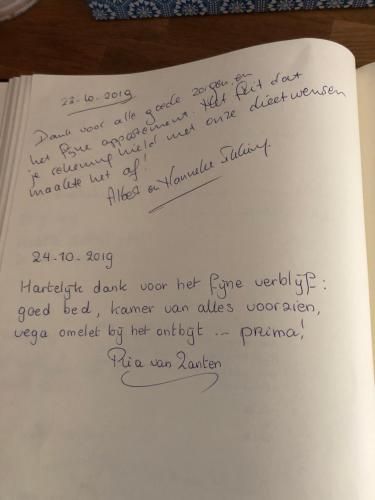 22-10-2019
Dank voor alle goede zorgen en
het fijne appartement. Het feit dat
je rekening hield met onze dieetwensen
maakte het af!
Albert en Hanneke
24-10-2019
Hartelijk dank voor het fijne verblijf:
goed bed, kamer van alles voorzien,
vega omelet bij het ontbijt ... prima!
Ria van Zanten